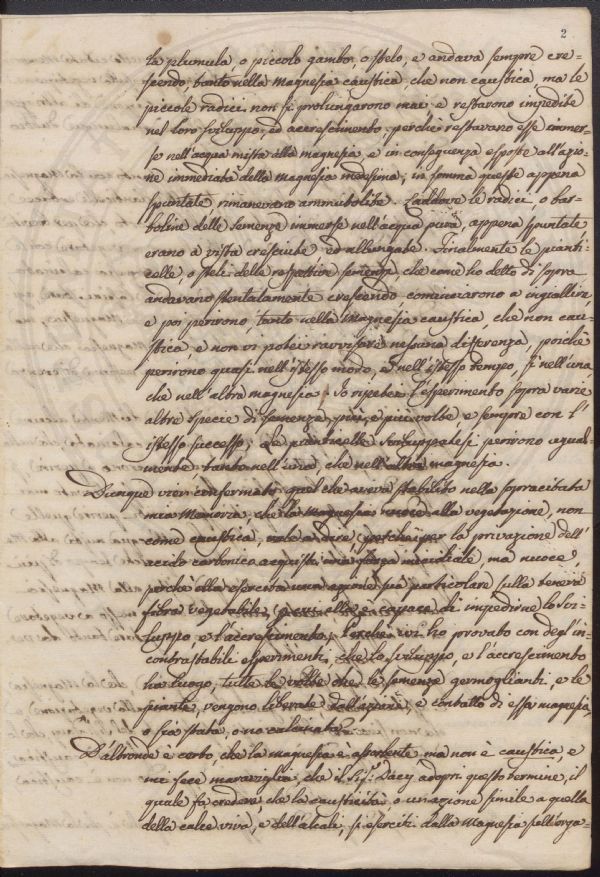 2
la plumula, o piccolo gambo, o stelo, e andava sempre cre-
scendo, tanto nella Magnesia caustica, che non caustica ma le
piccole radici non si prolungarono mai, e restarono impedite
nel loro sviluppo, ed accrescimento, perchè restavano esse immer-
se nell'acqua mista alla magnesia, e in conseguenza esposte all'azio-
ne immediata della magnesia medesima, in somma queste appena
spuntate rimanevano ammutolite. Laddove le radici, o bar-
boline delle semenze immerse nell'acqua pura, appena spuntate
erano a vista cresciute ed allungate. Finalmente le pianti-
celle, o steli delle rispettive semenze, che come ho detto di sopra
andavano stentatamente crescendo cominciarono a ingiallire,
e poi perirono, tanto nella Magnesia caustica, che non cau-
stica, e non vi potei ravvisare nessuna differenza, poichè
perirono quasi nell'istesso modo, e nell'istesso tempo, sì nell'una
che nell'altra magnesia. Io ripetei l'esperimento sopra varie
altre specie di semenza, più, e più volte, e sempre con l'
istesso successo, e le pianticelle sviluppatesi perirono egual-
mente, tanto nell'una, che nell'altra magnesia.
Dunque vien confermato quel che aveva stabilito nella sopracitata
mia Memoria, che la magnesia nuoce alla vegetazione, non
come caustica, vale a dire, perchè per la privazione dell'
acido carbonico acquisti una forza micidiale ma nuoce,
perchè essa esercita una azione sua particolare sulla tenera
fibra vegetabile, per cui essa è capace di impedirne lo svi-
luppo e l'accrescimento. Perchè ivi ho provato con degl'in-
contrastabili esperimenti, che lo sviluppo, e l'accrescimento
ha luogo, tutte le volte che le semenze germoglianti, e le
piante, vengono liberate dall'azione, e contatto di essa magnesia,
o sia stata, o no calcinata.
D'altronde è certo, che la magnesia è assorbente ma non è caustica, e
mi fece maraviglia, che il Sig. Davy adopri questo termine, il
quale fa credere che la causticità, o un'azione simile a quella
della calce viva, e dell'alcali, si eserciti dalla Magnesia sull'orga-